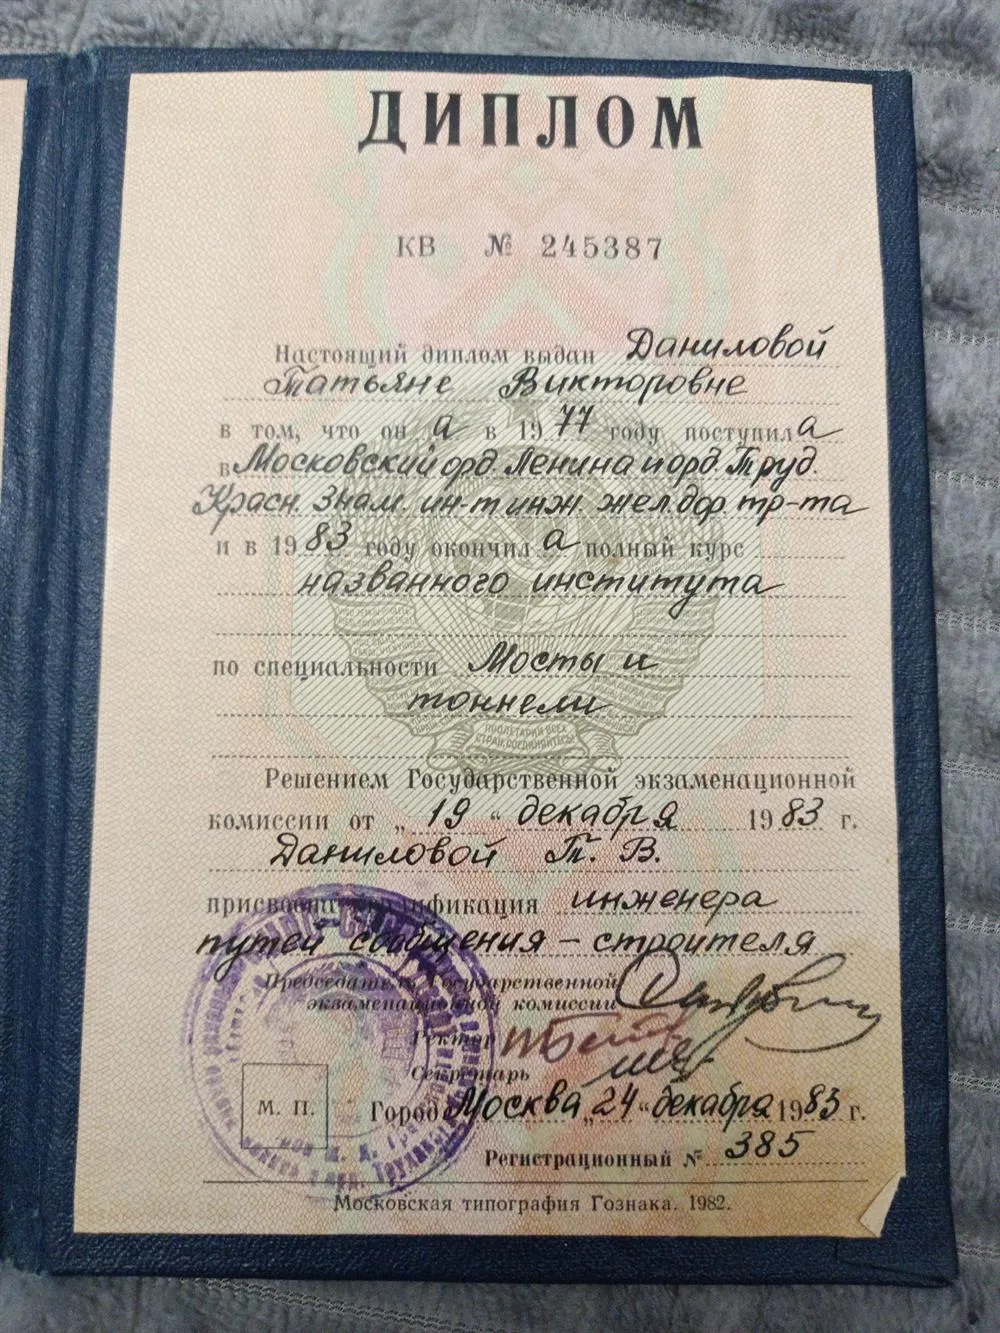 ДИПЛОМ
КВ № 245387
Настоящий диплом выдан Даниловой
Татьяне Викторовне
в том, что он а в 1977 году поступил а
в Московский орд. Ленина и орд. Труд.
Красн. Знам. ин-т инж. жел. дор. тр-та
и в 1983 году окончил а полный курс
названного института
по специальности Мосты и
тоннели
ПРОЛЕТАРИИ ВСЕХ
СТРАН, СОЕДИНЯЙТЕСЬ!
Решением Государственной экзаменационной
комиссии от „19“ декабря 1983 г.
Даниловой Т. В.
присвоена квалификация инженера
путей сообщения – строителя
Председатель Государственной
экзаменационной комиссии
Ректор
Секретарь
М. П. Город Москва „24“ декабря 1983 г.
Регистрационный № 385
Московская типография Гознака. 1982.